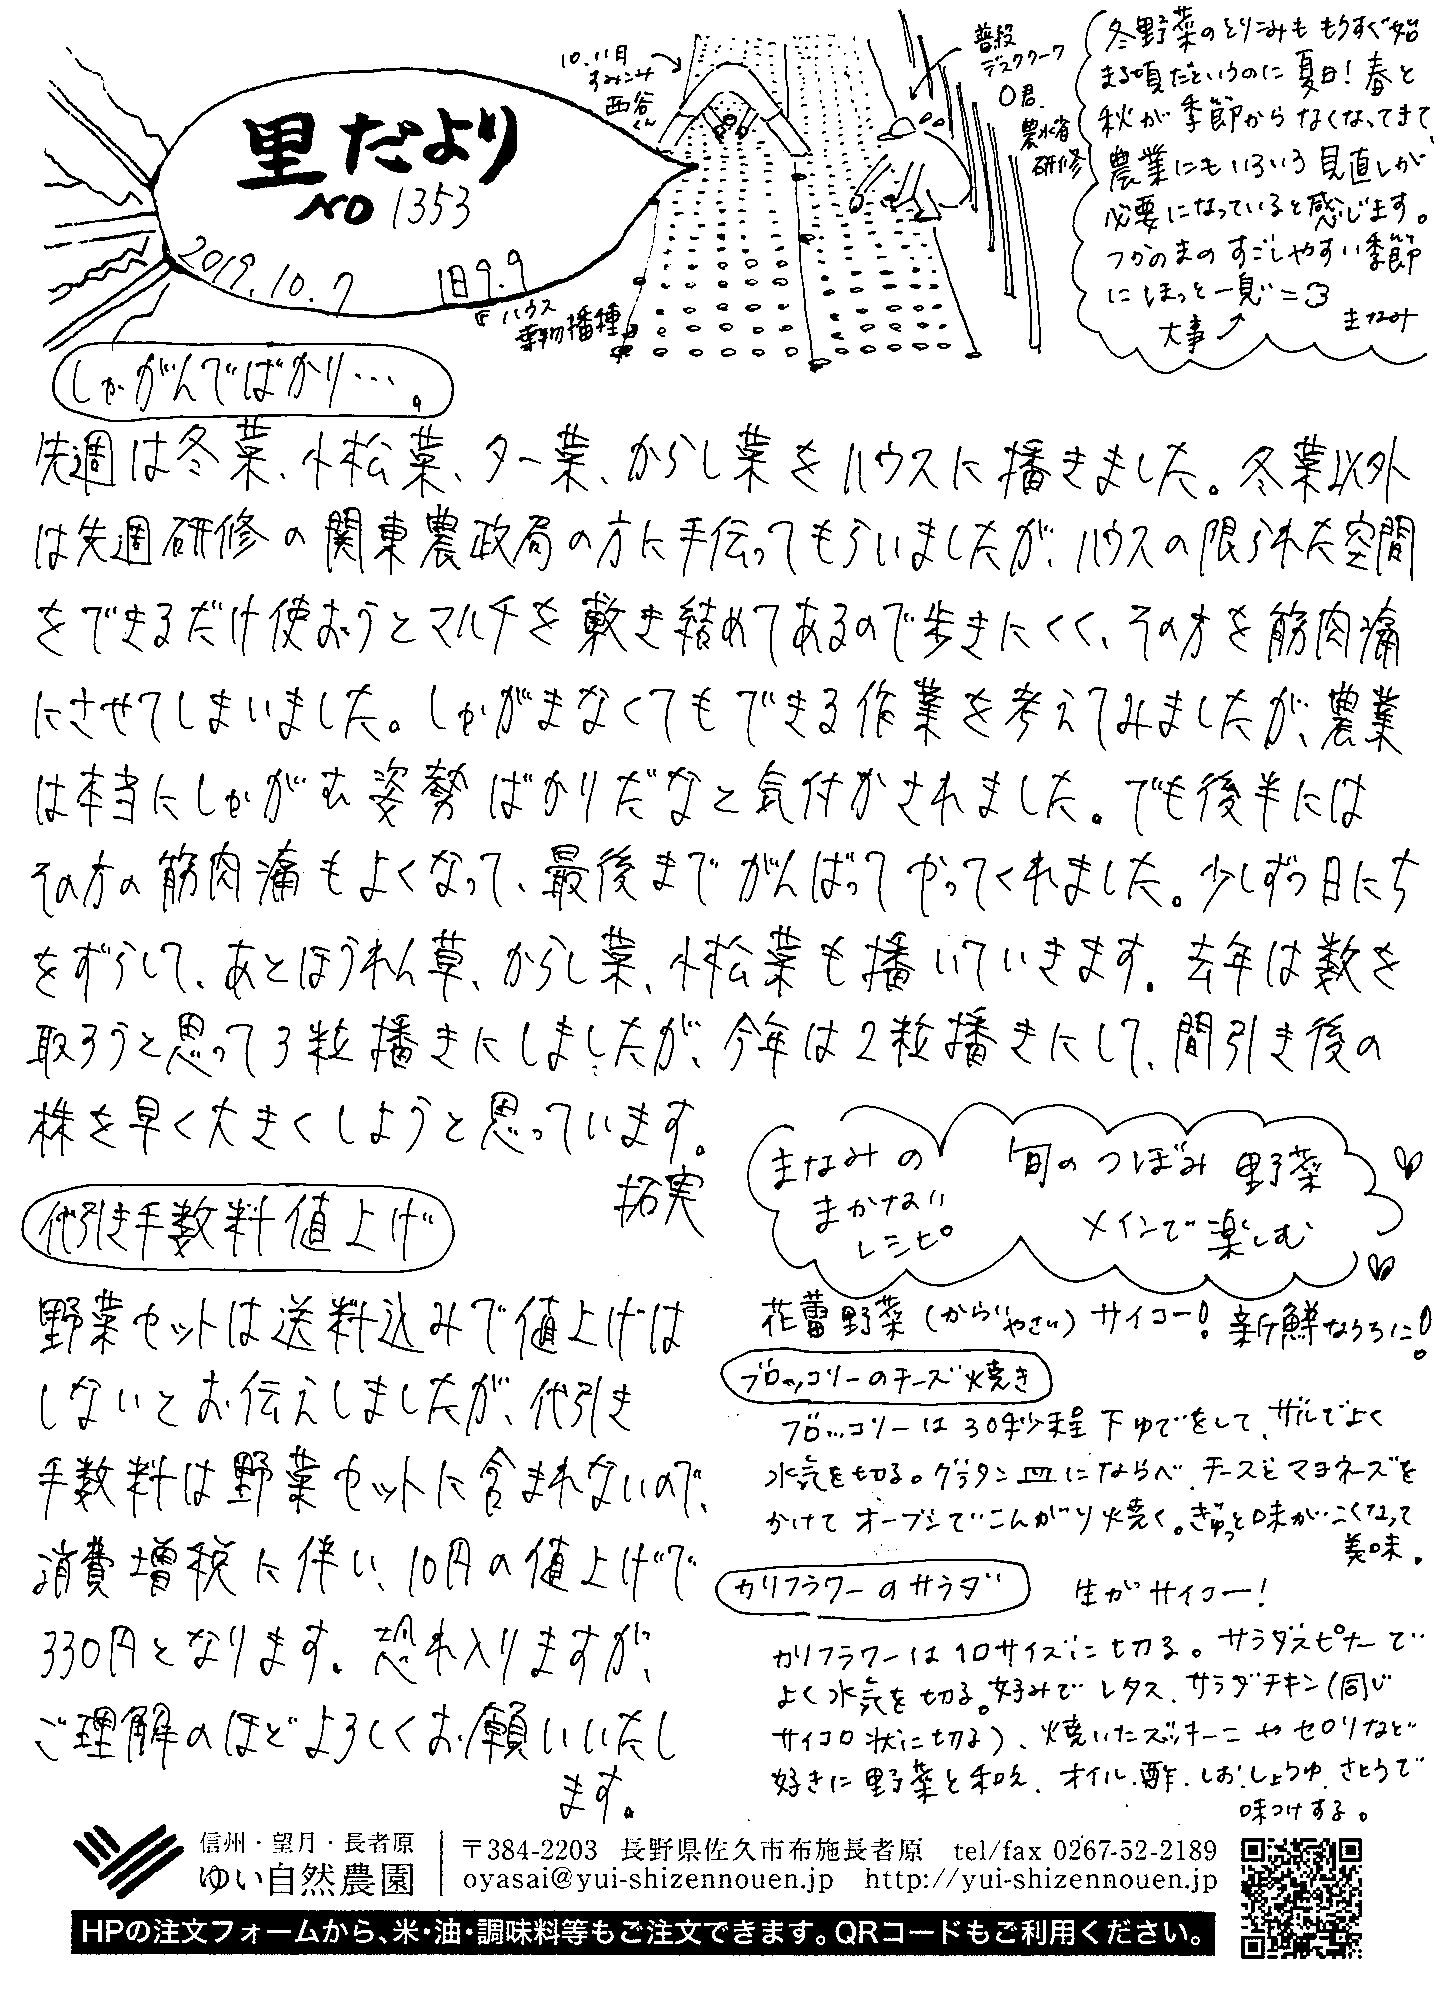 里だより
NO 1353
2019.10.7 旧9.9
ハウス
葉物播種
10.11日
すみこみ
西谷くん
普段
デスクワーク
O君
農水省
研修
冬野菜のとりこみももうすぐ始
まる頃だというのに夏日!春と
秋が季節からなくなってきて、
農業にもいろいろ見直しが
必要になっていると感じます。
つかのまのすごしやすい季節
にほっと一息=3
大事 まなみ
しゃがんでばかり…。
先週は冬菜、小松菜、ター菜、からし菜をハウスに播きました。冬菜以外
は先週研修の関東農政局の方に手伝ってもらいましたが、ハウスの限られた空間
をできるだけ使おうとマルチを敷き結めてあるので歩きにくく、その方を筋肉痛
にさせてしまいました。しゃがまなくてもできる作業を考えてみましたが、農業
は本当にしゃがむ姿勢ばかりだなと気付かされました。でも後半には
その方の筋肉痛もよくなって、最後までがんばってやってくれました。少しずつ日にち
をずらして、あとほうれん草、からし菜、小松菜も播いていきます。去年は数を
取ろうと思って3粒播きにしましたが、今年は2粒播きにして、間引き後の
株を早く大きくしようと思っています。
拓実
代引き手数料値上げ
野菜セットは送料込みで値上げは
しないとお伝えしましたが、代引き
手数料は野菜セットに含まれないので、
消費増税に伴い、10円の値上げで
330円となります。恐れ入りますが、
ご理解のほどよろしくお願いいたし
ます。
まなみの
まかない
レシピ
旬のつぼみ野菜
メインで楽しむ
花蕾野菜(からいやさい)サイコー!新鮮なうちに!
ブロッコリーのチーズ焼き
ブロッコリーは30秒程下ゆでをして、ザルでよく
水気を切る。グラタン皿にならべ、チーズとマヨネーズを
かけてオーブンでこんがり焼く。ぎゅっと味がこくなって
美味。
カリフラワーのサラダ 生がサイコー!
カリフラワーは1口サイズに切る。サラダスピナーで
よく水気を切る。好みでレタス、サラダチキン(同じ
サイコロ状に切る)、焼いたズッキーニやセロリなど
好きに野菜と和え、オイル、酢、しお、しょうゆ、さとうで
味つけする。
信州・望月・長者原
ゆい自然農園
〒384-2203 長野県佐久市布施長者原 tel/fax 0267-52-2189
oyasai@yui-shizennouen.jp http://yui-shizennouen.jp
HPの注文フォームから、米・油・調味料等もご注文できます。QRコードもご利用ください。